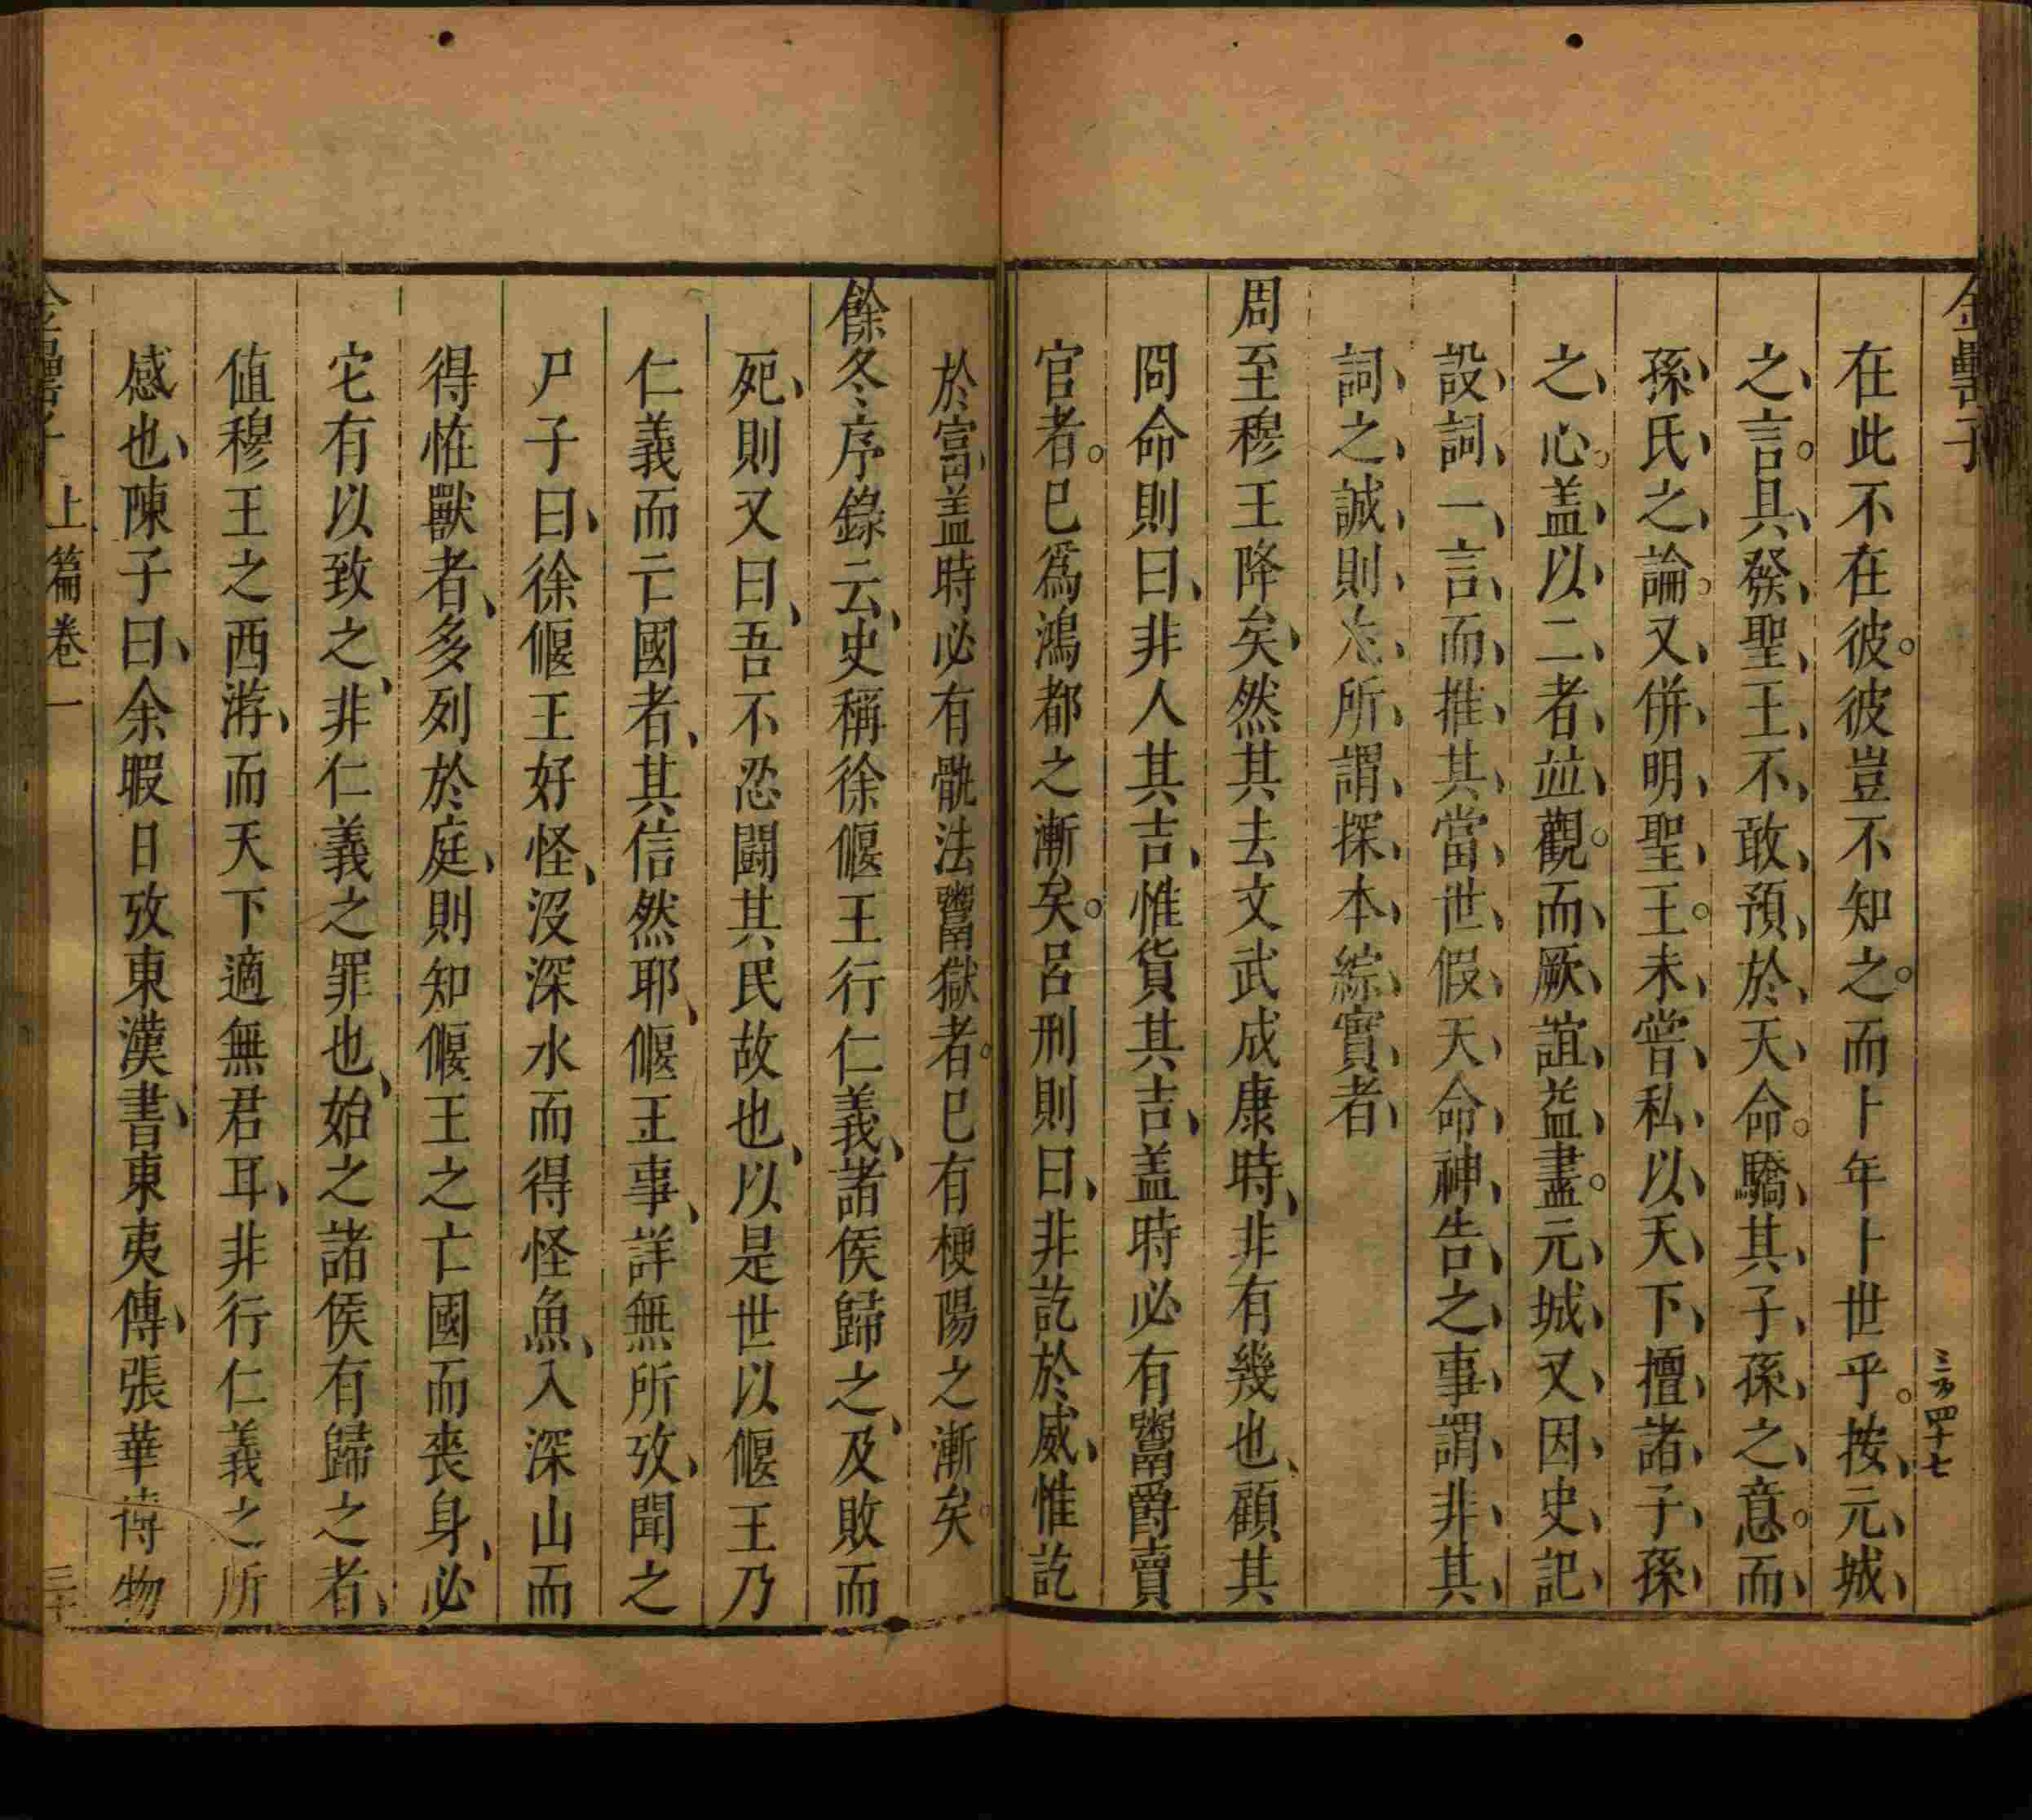 金罍子
三百四十七
在此不在彼。彼豈不知之。而卜年卜世乎。按、元、城、
之、言。具、發、聖、王、不、敢、預、於、天、命。驕、其、子、孫、之、意。而、
孫、氏、之、論。又、併、明、聖、王。未、嘗、私、以、天、下、擅、諸、子、孫、
之、心。盖、以、二、者、並、觀。而、厥、誼、益、盡。元、城、又、因、史、記、
設、詞、一、言、而、推、其、當、世、假、天、命、神、告、之、事、謂、非、其、
詞、之、誠、則、左、所、謂、探、本、綜、實、者、
周至穆王降矣、然其去文武成康時、非有幾也、顧其
冏命則曰、非人其吉、惟貨其吉、盖時必有鬻爵賣
官者。已爲鴻都之漸矣。呂刑則曰、非訖於威、惟訖
於富、盖時必有骩法鬻獄者。已有梗陽之漸矣。
餘冬序錄云、史稱徐偃王行仁義、諸侯歸之、及敗而
死、則又曰、吾不忍鬪其民故也、以是世以偃王乃
仁義而亡國者、其信然耶、偃王事、詳無所攷、聞之
尸子曰、徐偃王好怪、没深水而得怪魚、入深山而
得恠獸者、多列於庭、則知偃王之亡國而喪身、必
它有以致之、非仁義之罪也、始之諸侯有歸之者、
值穆王之西游、而天下適無君耳、非行仁義之所
感也、陳子曰、余暇日攷東漢書、東夷傳、張華博物
金罍子 上篇卷一 三十